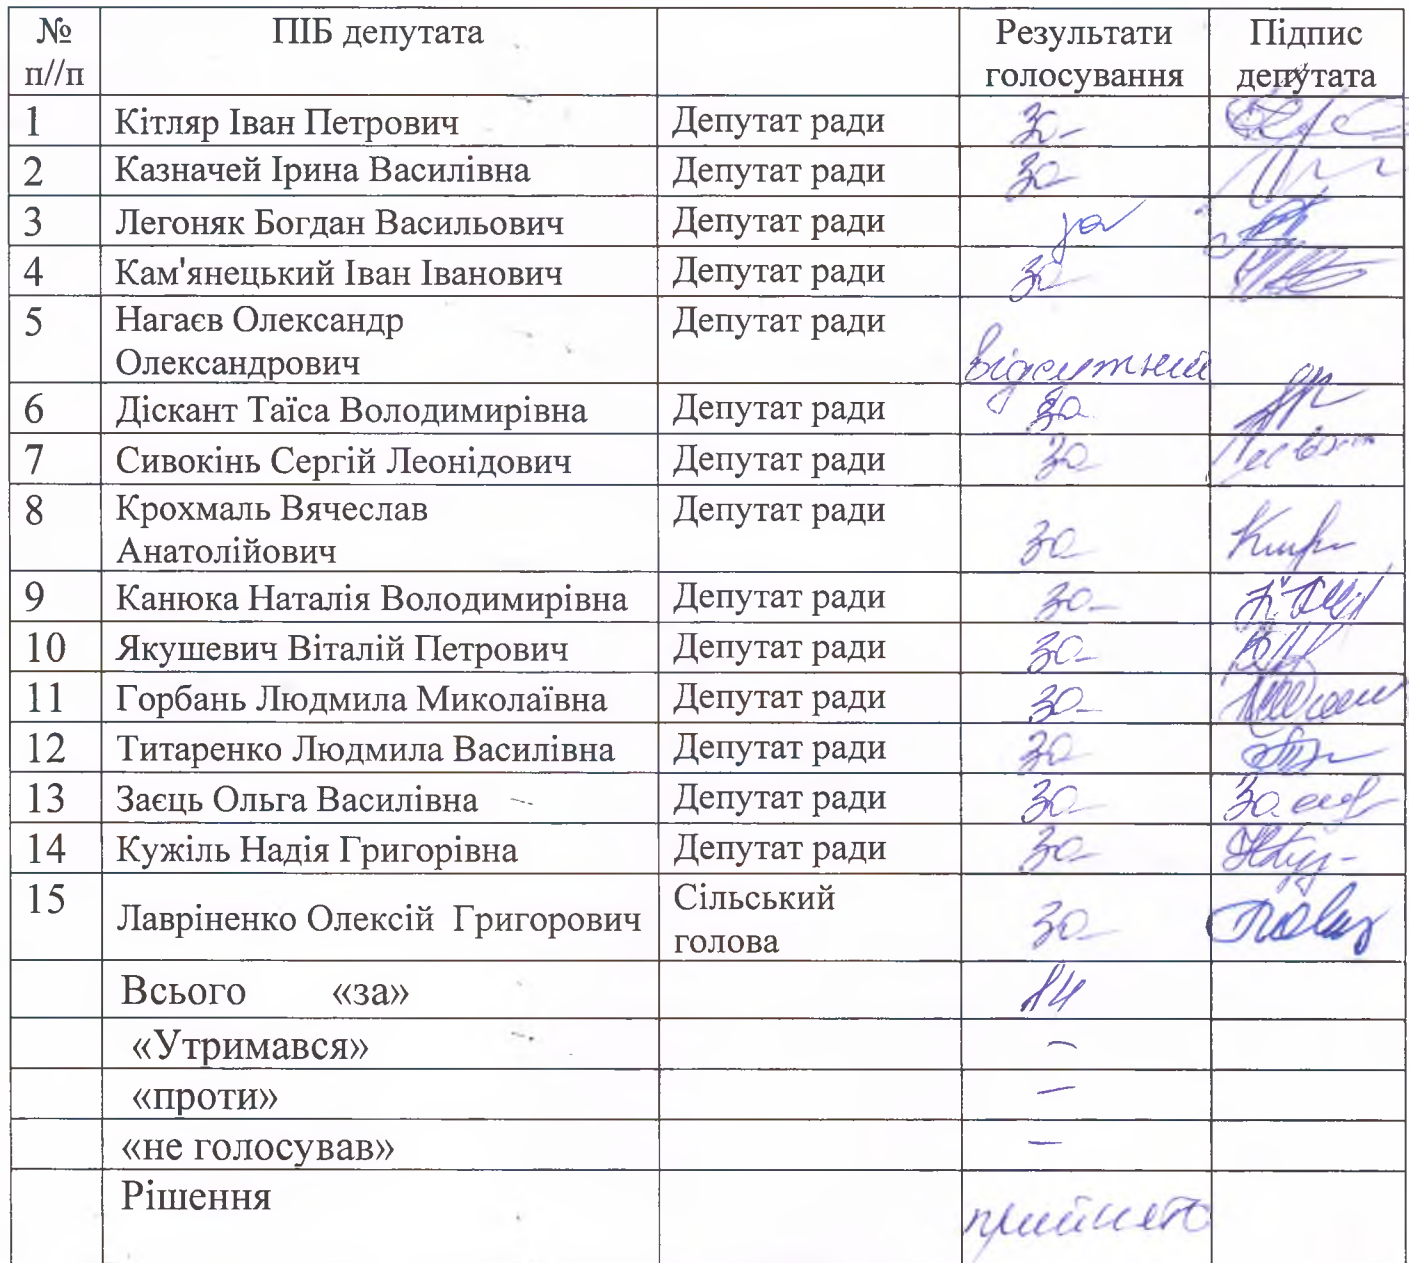 № ПІБ депутата Результати Підпис
п//п голосування депутата
1 Кітляр Іван Петрович Депутат ради за
2 Казначей Ірина Василівна Депутат ради за
3 Легоняк Богдан Васильович Депутат ради за
4 Кам'янецький Іван Іванович Депутат ради за
5 Нагаєв Олександр Депутат ради
Олександрович відсутній
6 Діскант Таїса Володимирівна Депутат ради за
7 Сивокінь Сергій Леонідович Депутат ради за
8 Крохмаль Вячеслав Депутат ради
Анатолійович за
9 Канюка Наталія Володимирівна Депутат ради за
10 Якушевич Віталій Петрович Депутат ради за
11 Горбань Людмила Миколаївна Депутат ради за
12 Титаренко Людмила Василівна Депутат ради за
13 Заєць Ольга Василівна Депутат ради за
14 Кужіль Надія Григорівна Депутат ради за
15 Лавріненко Олексій Григорович Сільський
голова за
Всього «за» 14
«Утримався» –
«проти» –
«не голосував» –
Рішення прийнято